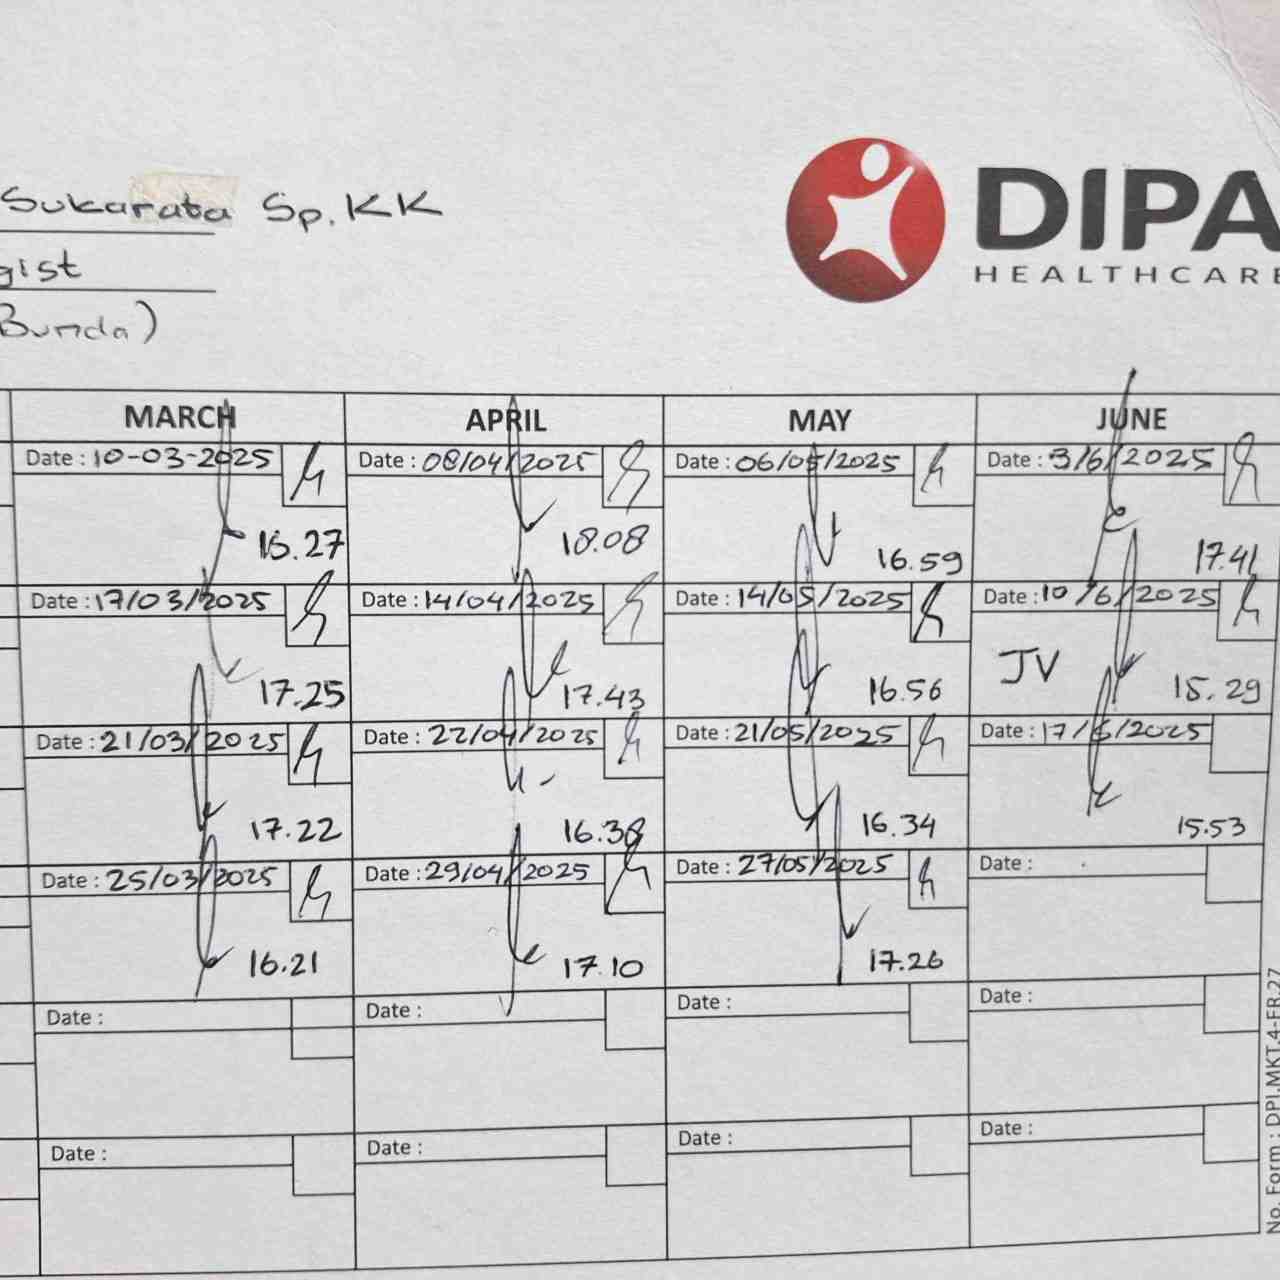 Sukarata Sp.KK
gist
Bunda)
DIPA
HEALTHCARE
MARCH APRIL MAY JUNE
Date : 10-03-2025 Date : 08/04/2025 Date : 06/05/2025 Date : 3/6/2025
15.27 18.08 16.59 17.41
Date : 17/03/2025 Date : 14/04/2025 Date : 14/05/2025 Date : 10/6/2025
17.25 17.43 16.56 JV 15.29
Date : 21/03/2025 Date : 22/04/2025 Date : 21/05/2025 Date : 17/6/2025
17.22 16.38 16.34 15.53
Date : 25/03/2025 Date : 29/04/2025 Date : 27/05/2025 Date :
16.21 17.10 17.26
Date : Date : Date : Date :
Date : Date : Date : Date :
No. Form : DPI.MKT.4-FR.27